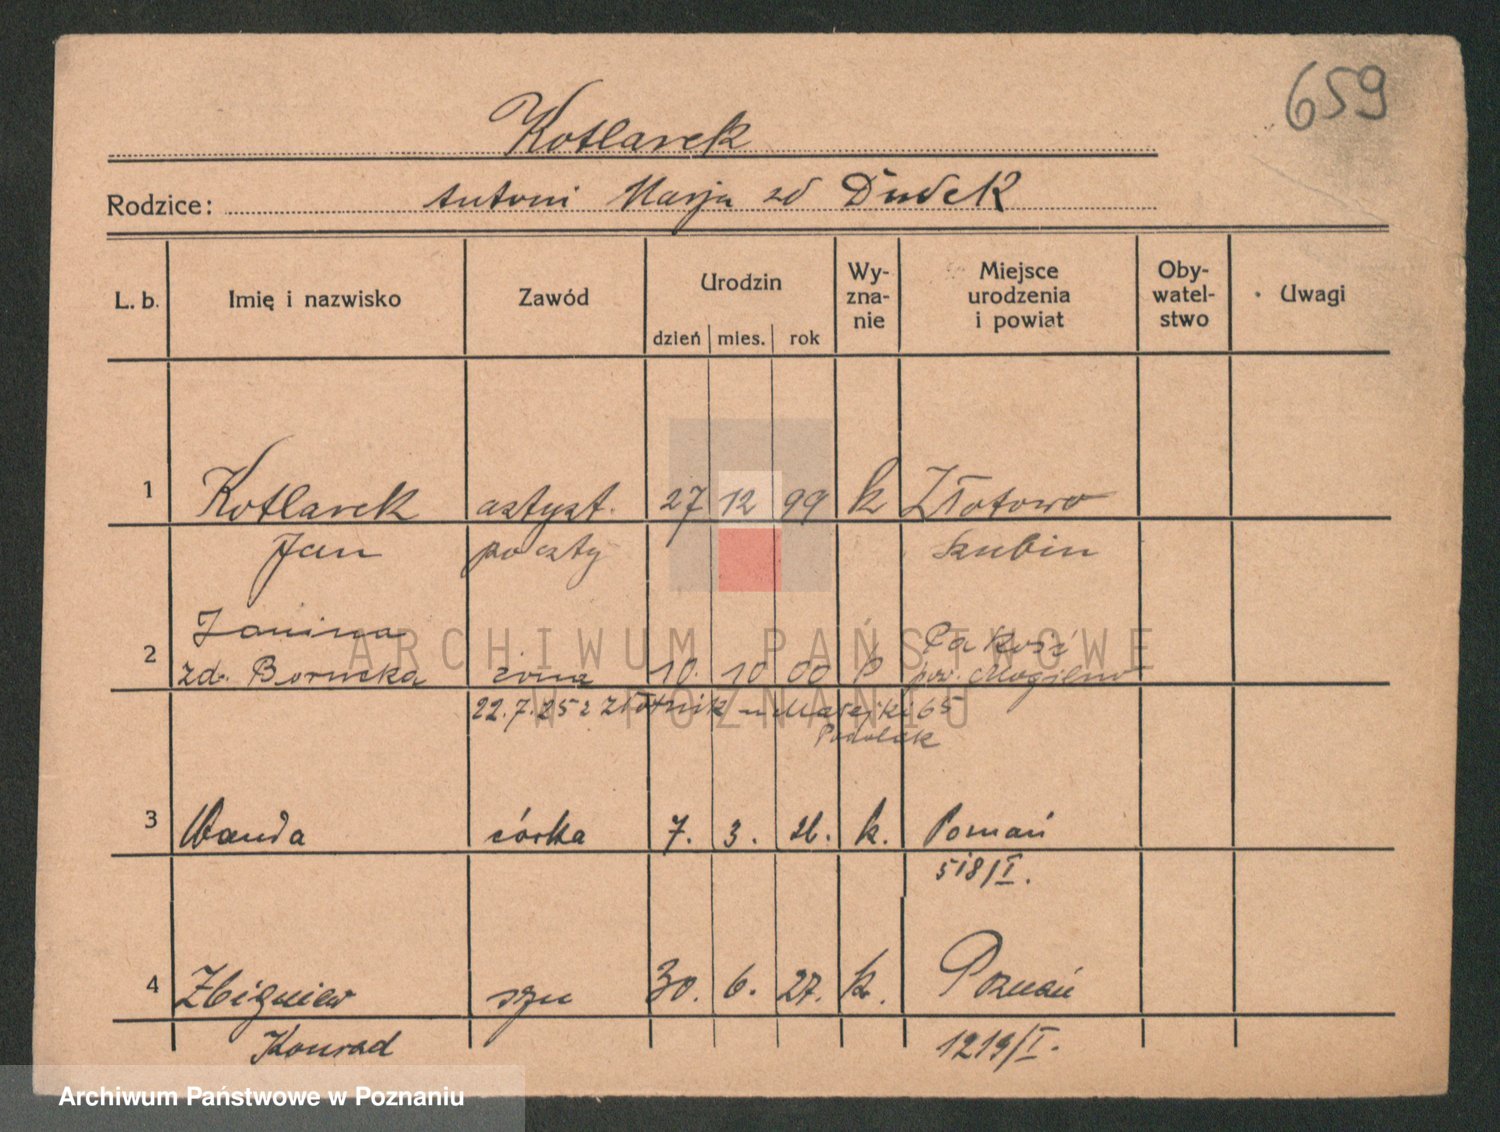 659
Kotlarek
Rodzice: Antoni Marja zd Dudek
L. b. Imię i nazwisko Zawód Urodzin Wy-zna-nie Miejsce urodzenia i powiat Oby-watel-stwo Uwagi
dzień mies. rok
1 Kotlarek astyst. 27 12 99 k Złotowo
Jan poczty Szubin
Janina Pakość
2 zd. Borucka żona 10. 10 00 k pow. Mogilno
22.7.25 z Złotnik - Matejki 65
Podolak
3 Wanda córka 7. 3. 26. k. Poznań
518/I.
4 Zbigniew syn 30. 6. 27. k. Poznań
Konrad 1219/I.
ARCHIWUM PAŃSTWOWE
W POZNANIU
Archiwum Państwowe w Poznaniu